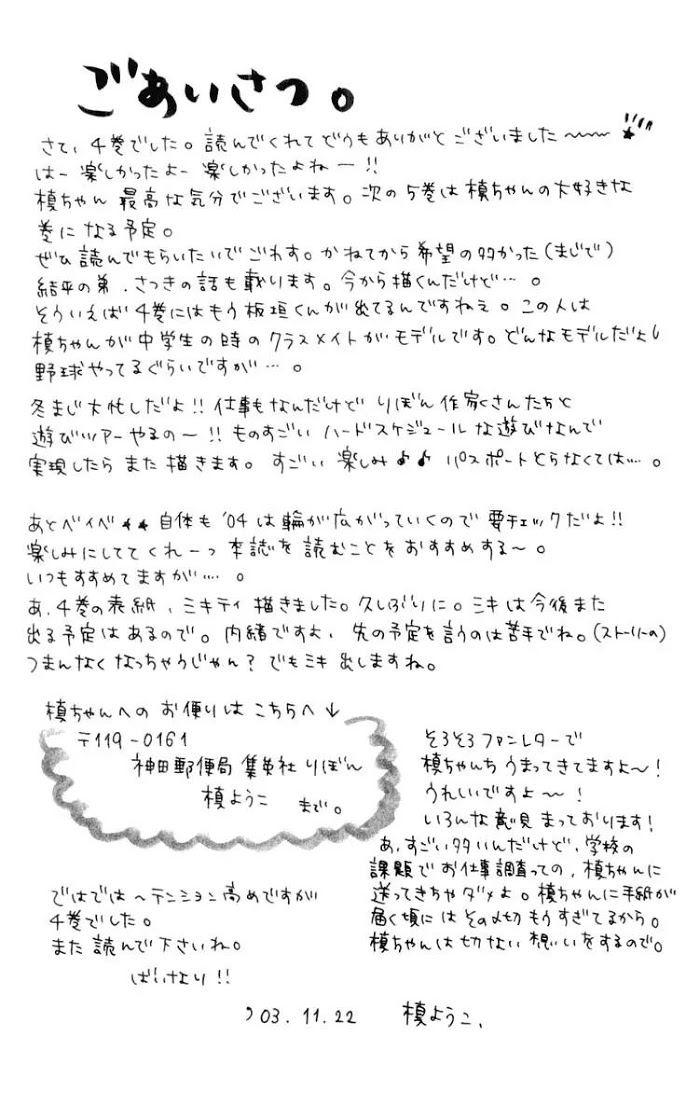 ごあいさつ。
さて、4巻でした。読んでくれてどうもありがとございました〜〜
はー楽しかったよー楽しかったよねー!!
槙ちゃん最高な気分でございます。次の5巻は槙ちゃんの大好きな
巻になる予定。
ぜひ読んでもらいたいでごわす。かねてから希望の多かった(まじで)
結平の弟、さつきの話も載ります。今から描くんだけど…。
そういえば4巻にはもう板垣くんが出てるんですねぇ。この人は
槙ちゃんが中学生の時のクラスメイトがモデルです。どんなモデルだよ
野球やってるぐらいですが…。
冬まじ大忙しだよ!!仕事もなんだけどりぼん作家さんたちと
遊びツアーやるの〜!!ものすごいハードスケジュールな遊びなんで
実現したらまた描きます。すごい楽しみ♪♪パスポートとらなくては…。
あとベイベ★★自体も'04は輪が広がっていくので要チェックだよ!!
楽しみにしててくれーっ本誌を読むことをおすすめする〜。
いつもすすめてますが…。
あ、4巻の表紙、ミキティ描きました。久しぶりに。ミキは今後また
出る予定はあるので。内緒ですよ、先の予定を言うのは苦手でね。(ストーリーの)
つまんなくなっちゃうじゃん?でもミキ出しますね。
槙ちゃんへのお便りはこちらへ↓
〒119-0161
神田郵便局集英社りぼん
槙ようこ まで。
そろそろファンレターで
槙ちゃんちうまってきてますよ〜!
うれしいですよ〜!
いろんな意見まっております!
あ、すごい多いんだけど、学校の
課題でお仕事調査っての、槙ちゃんに
送ってきちゃダメよ。槙ちゃんに手紙が
届く頃にはその〆切もうすぎてるから。
槙ちゃんは切ない想いをするので。
ではでは〜テンション高めですが
4巻でした。
また読んで下さいね。
ばいなり!!
'03.11.22 槙ようこ、